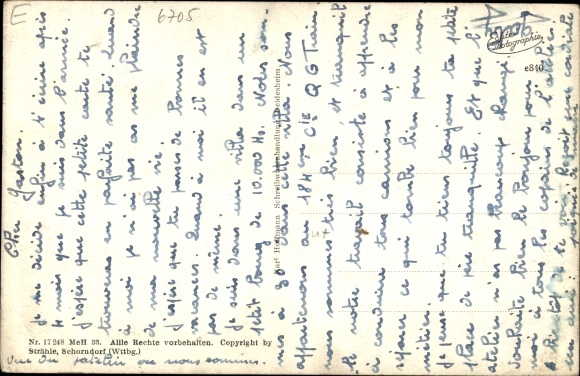 E
6705
Cher Gaston.
Je me décide enfin à t'écrire après
4 mois que je suis dans l'armée.
J'espère que cette petite carte te
trouvera en parfaite santé. Quand
à moi je n'ai pas à me plaindre
de ma nouvelle vie.
J'espère que tu passes de bonnes
vacances. Quand à moi il en est
pas de même.
Je suis dans une ville dans un
petit bourg de 10.000 Hs. Nous som-
mes à 30 dans cette villa. Nous
appartenons au 184 em Cie QG Train.
nous sommes très bien, et tranquil
le notre travail consiste à apprendre
à conduire tous camions et à les
réparer ce qui tombe bien pour mon
métier.
Je pense que tu tiens toujours ta petite
place de père tranquille. Et que l'
atelier n'a pas beaucoup changé
Souhaite bien le bonjour pour
moi à tous les copains de l'atelier.
Karl Hoffmann Schreibwarenhandlung Deidesheim
Echte Photographie
e840
Nr. 17248 MeH 38. Allle Rechte vorbehalten. Copyright by
Strähle, Schorndorf (Wttbg.)
Vue du patelin ou nous sommes.